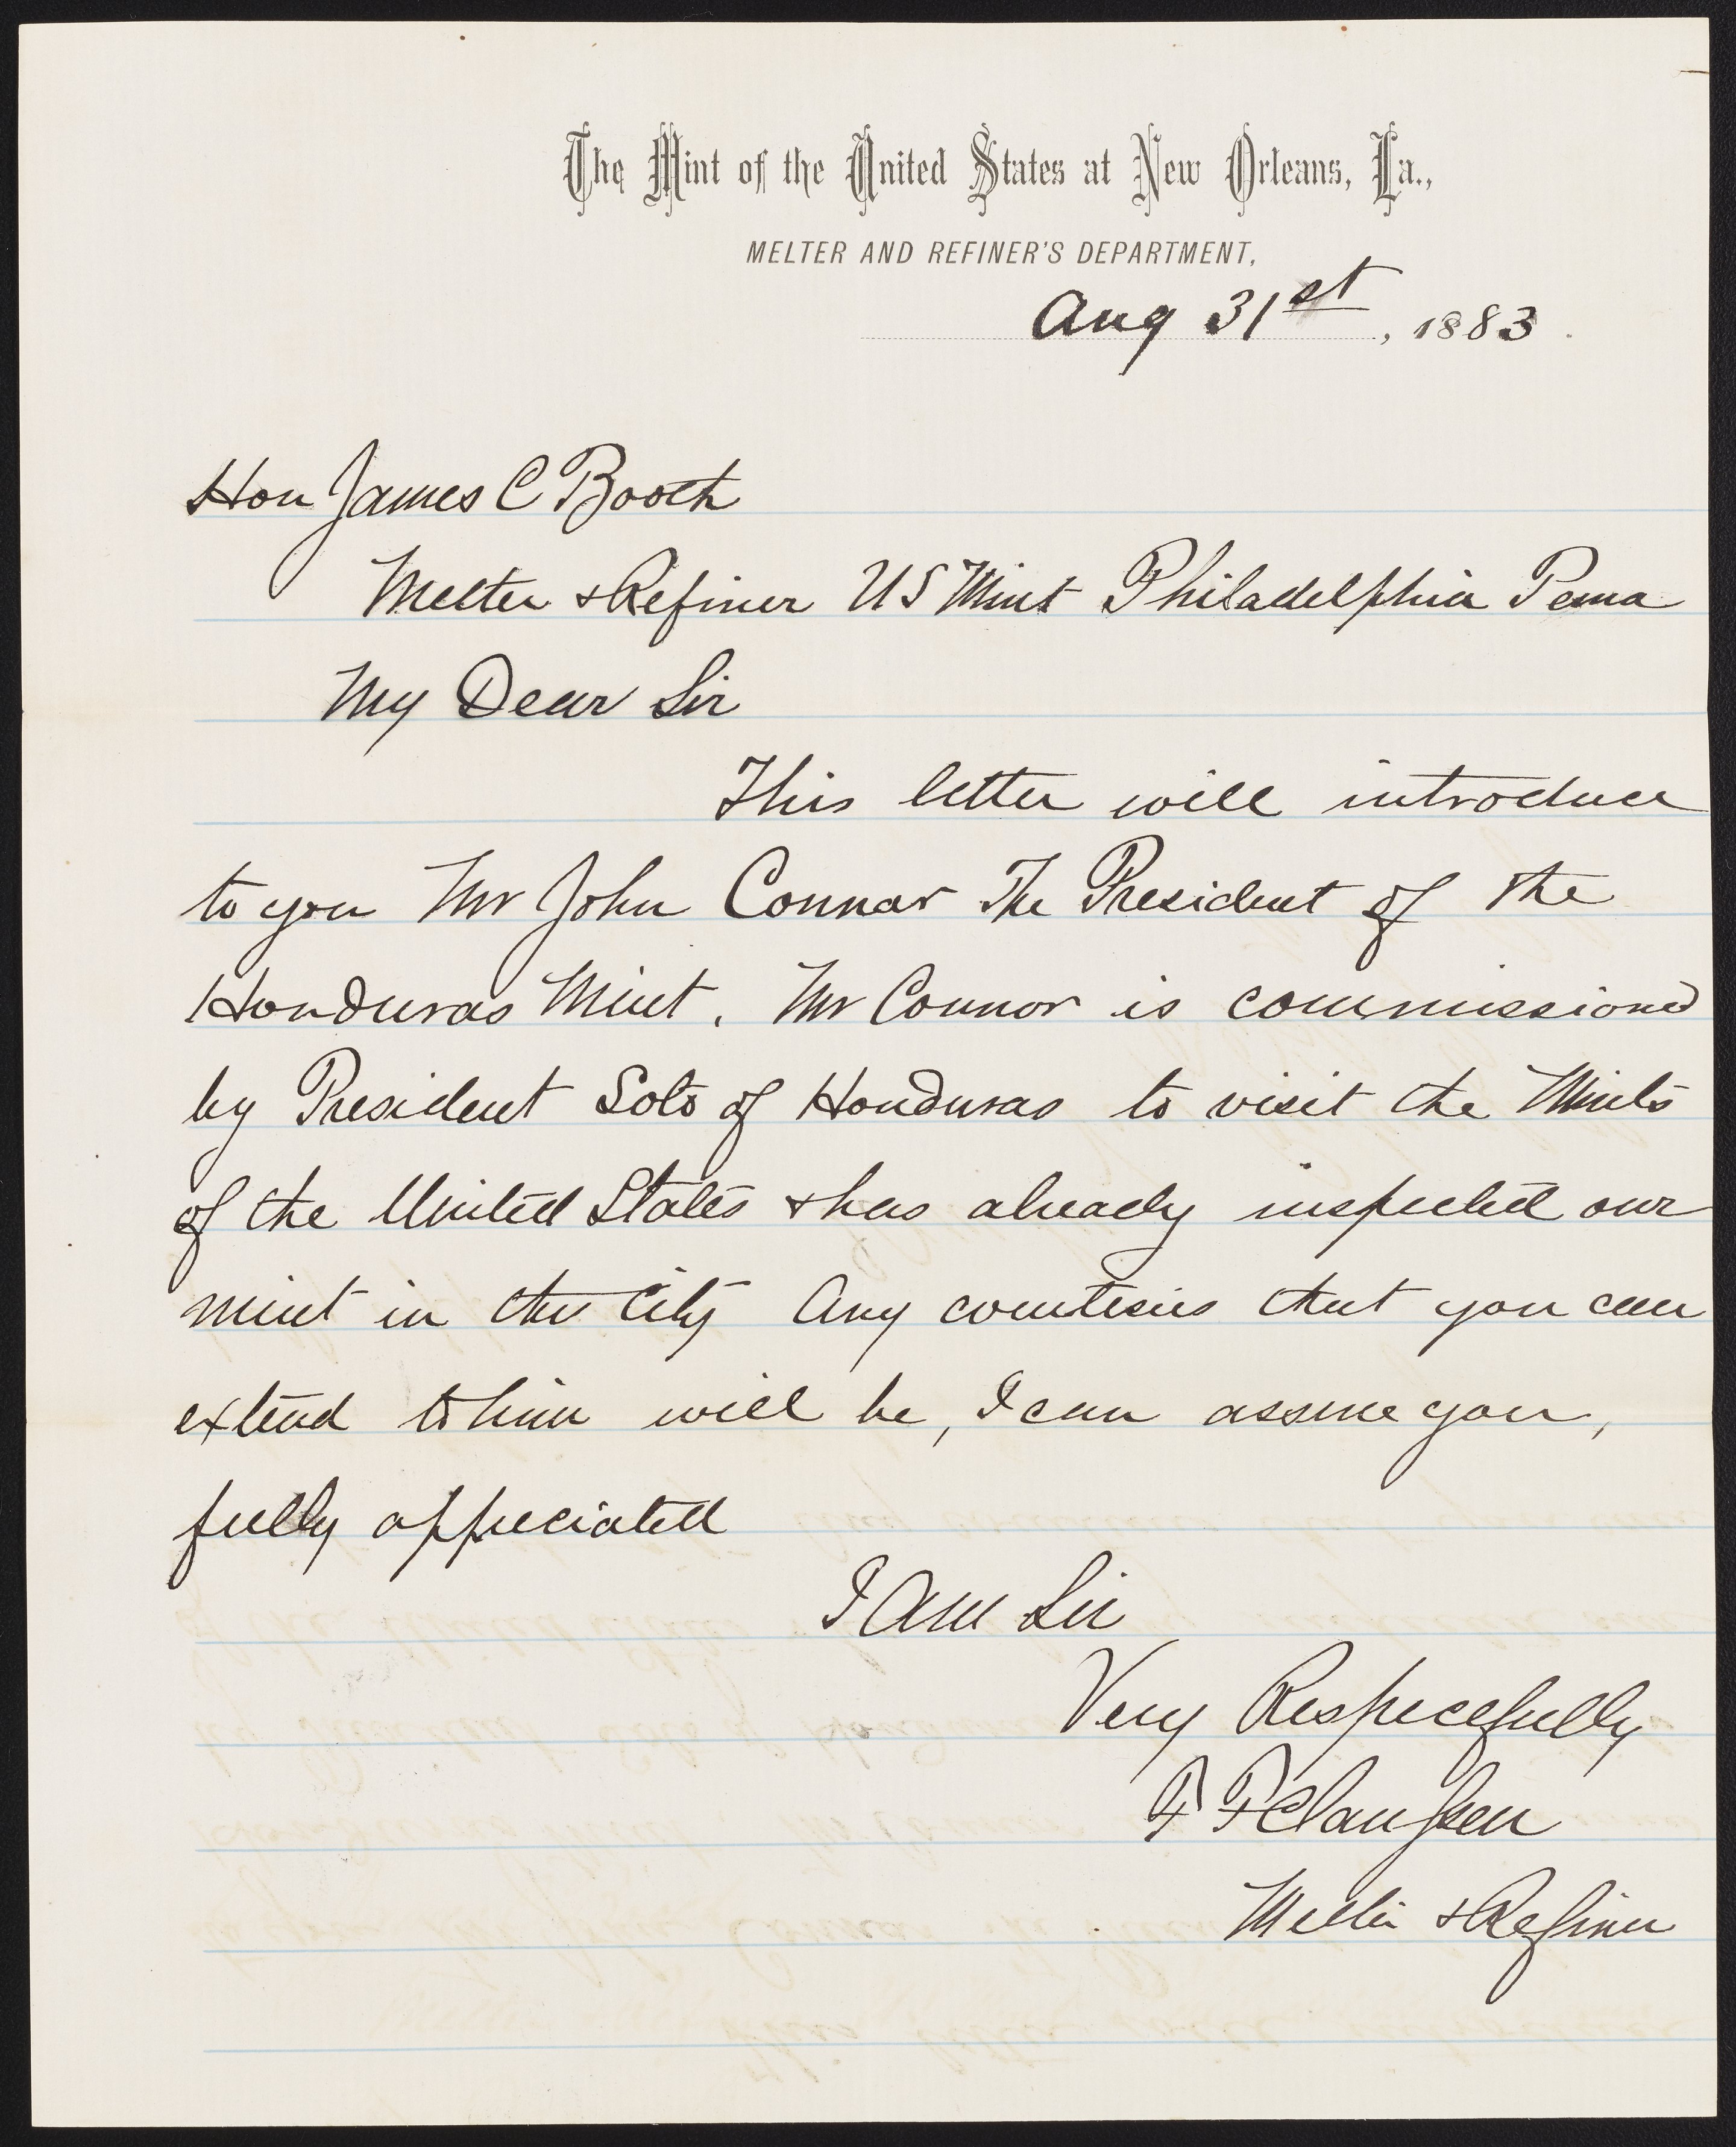 The Mint of the United States at New Orleans, La.,
MELTER AND REFINER'S DEPARTMENT,
Aug 31st, 1883.
Hon James C Booth
Melter & Refiner US Mint Philadelphia Penna
My Dear Sir
This letter will introduce
to you Mr John Connor The President of the
Honduras Mint. Mr Connor is commissioned
by President Soto of Honduras to visit the Mints
of the United States & has already inspected our
mint in the City Any courtesies that you can
extend to him will be, I can assure you,
fully appreciated
I Am Sir
Very Respectfully
F F Claussen
Melter & Refiner